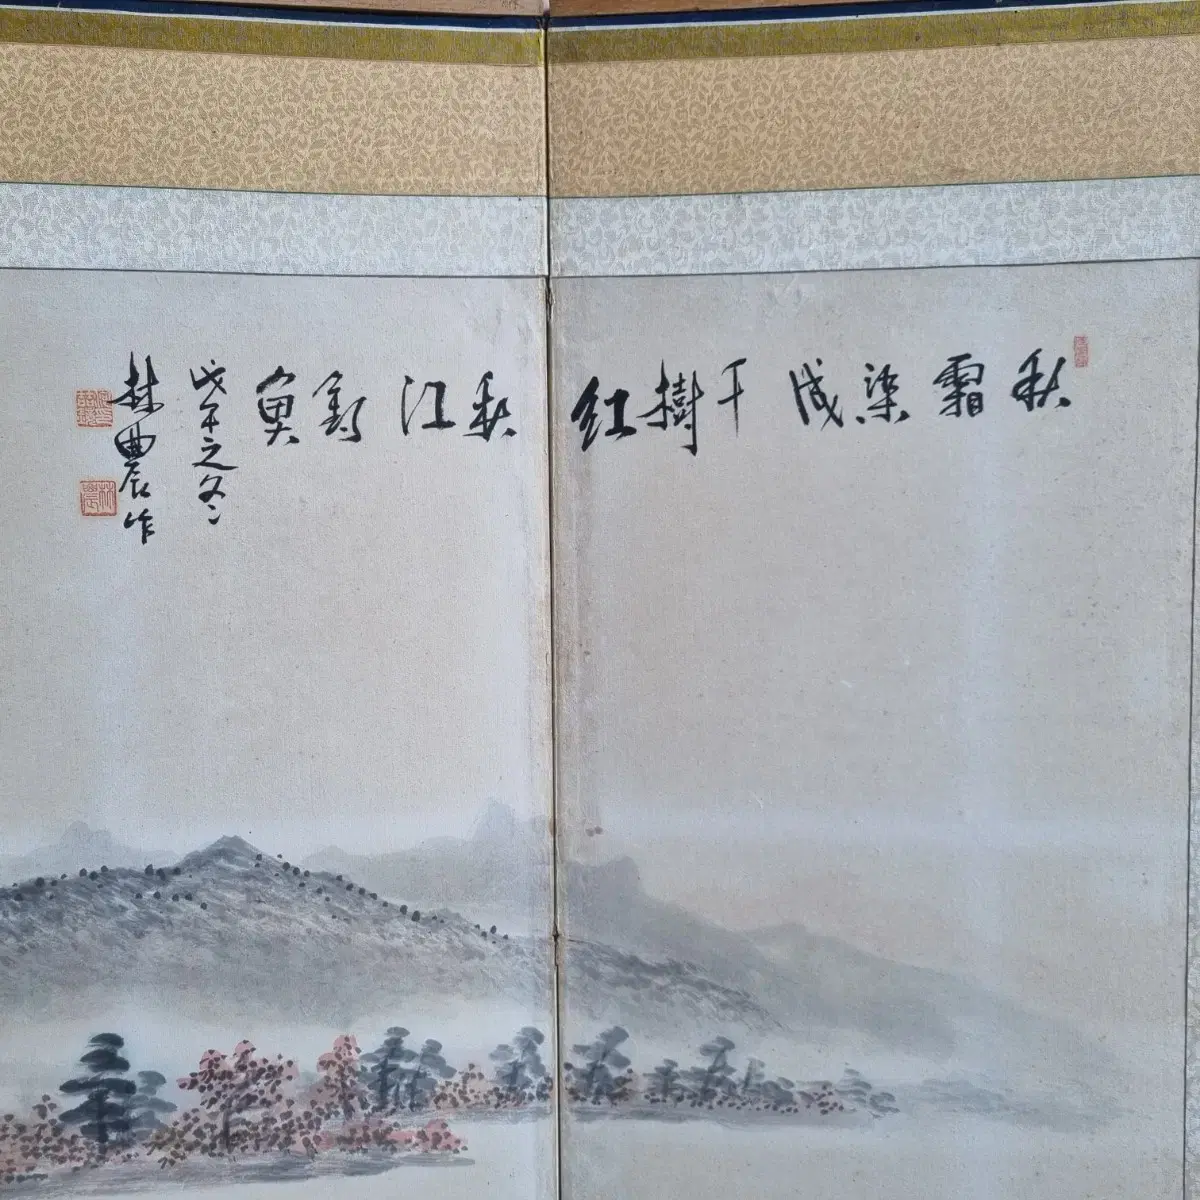 秋霜染成千樹紅秋江釣魚
戊午之冬
林農作
林農